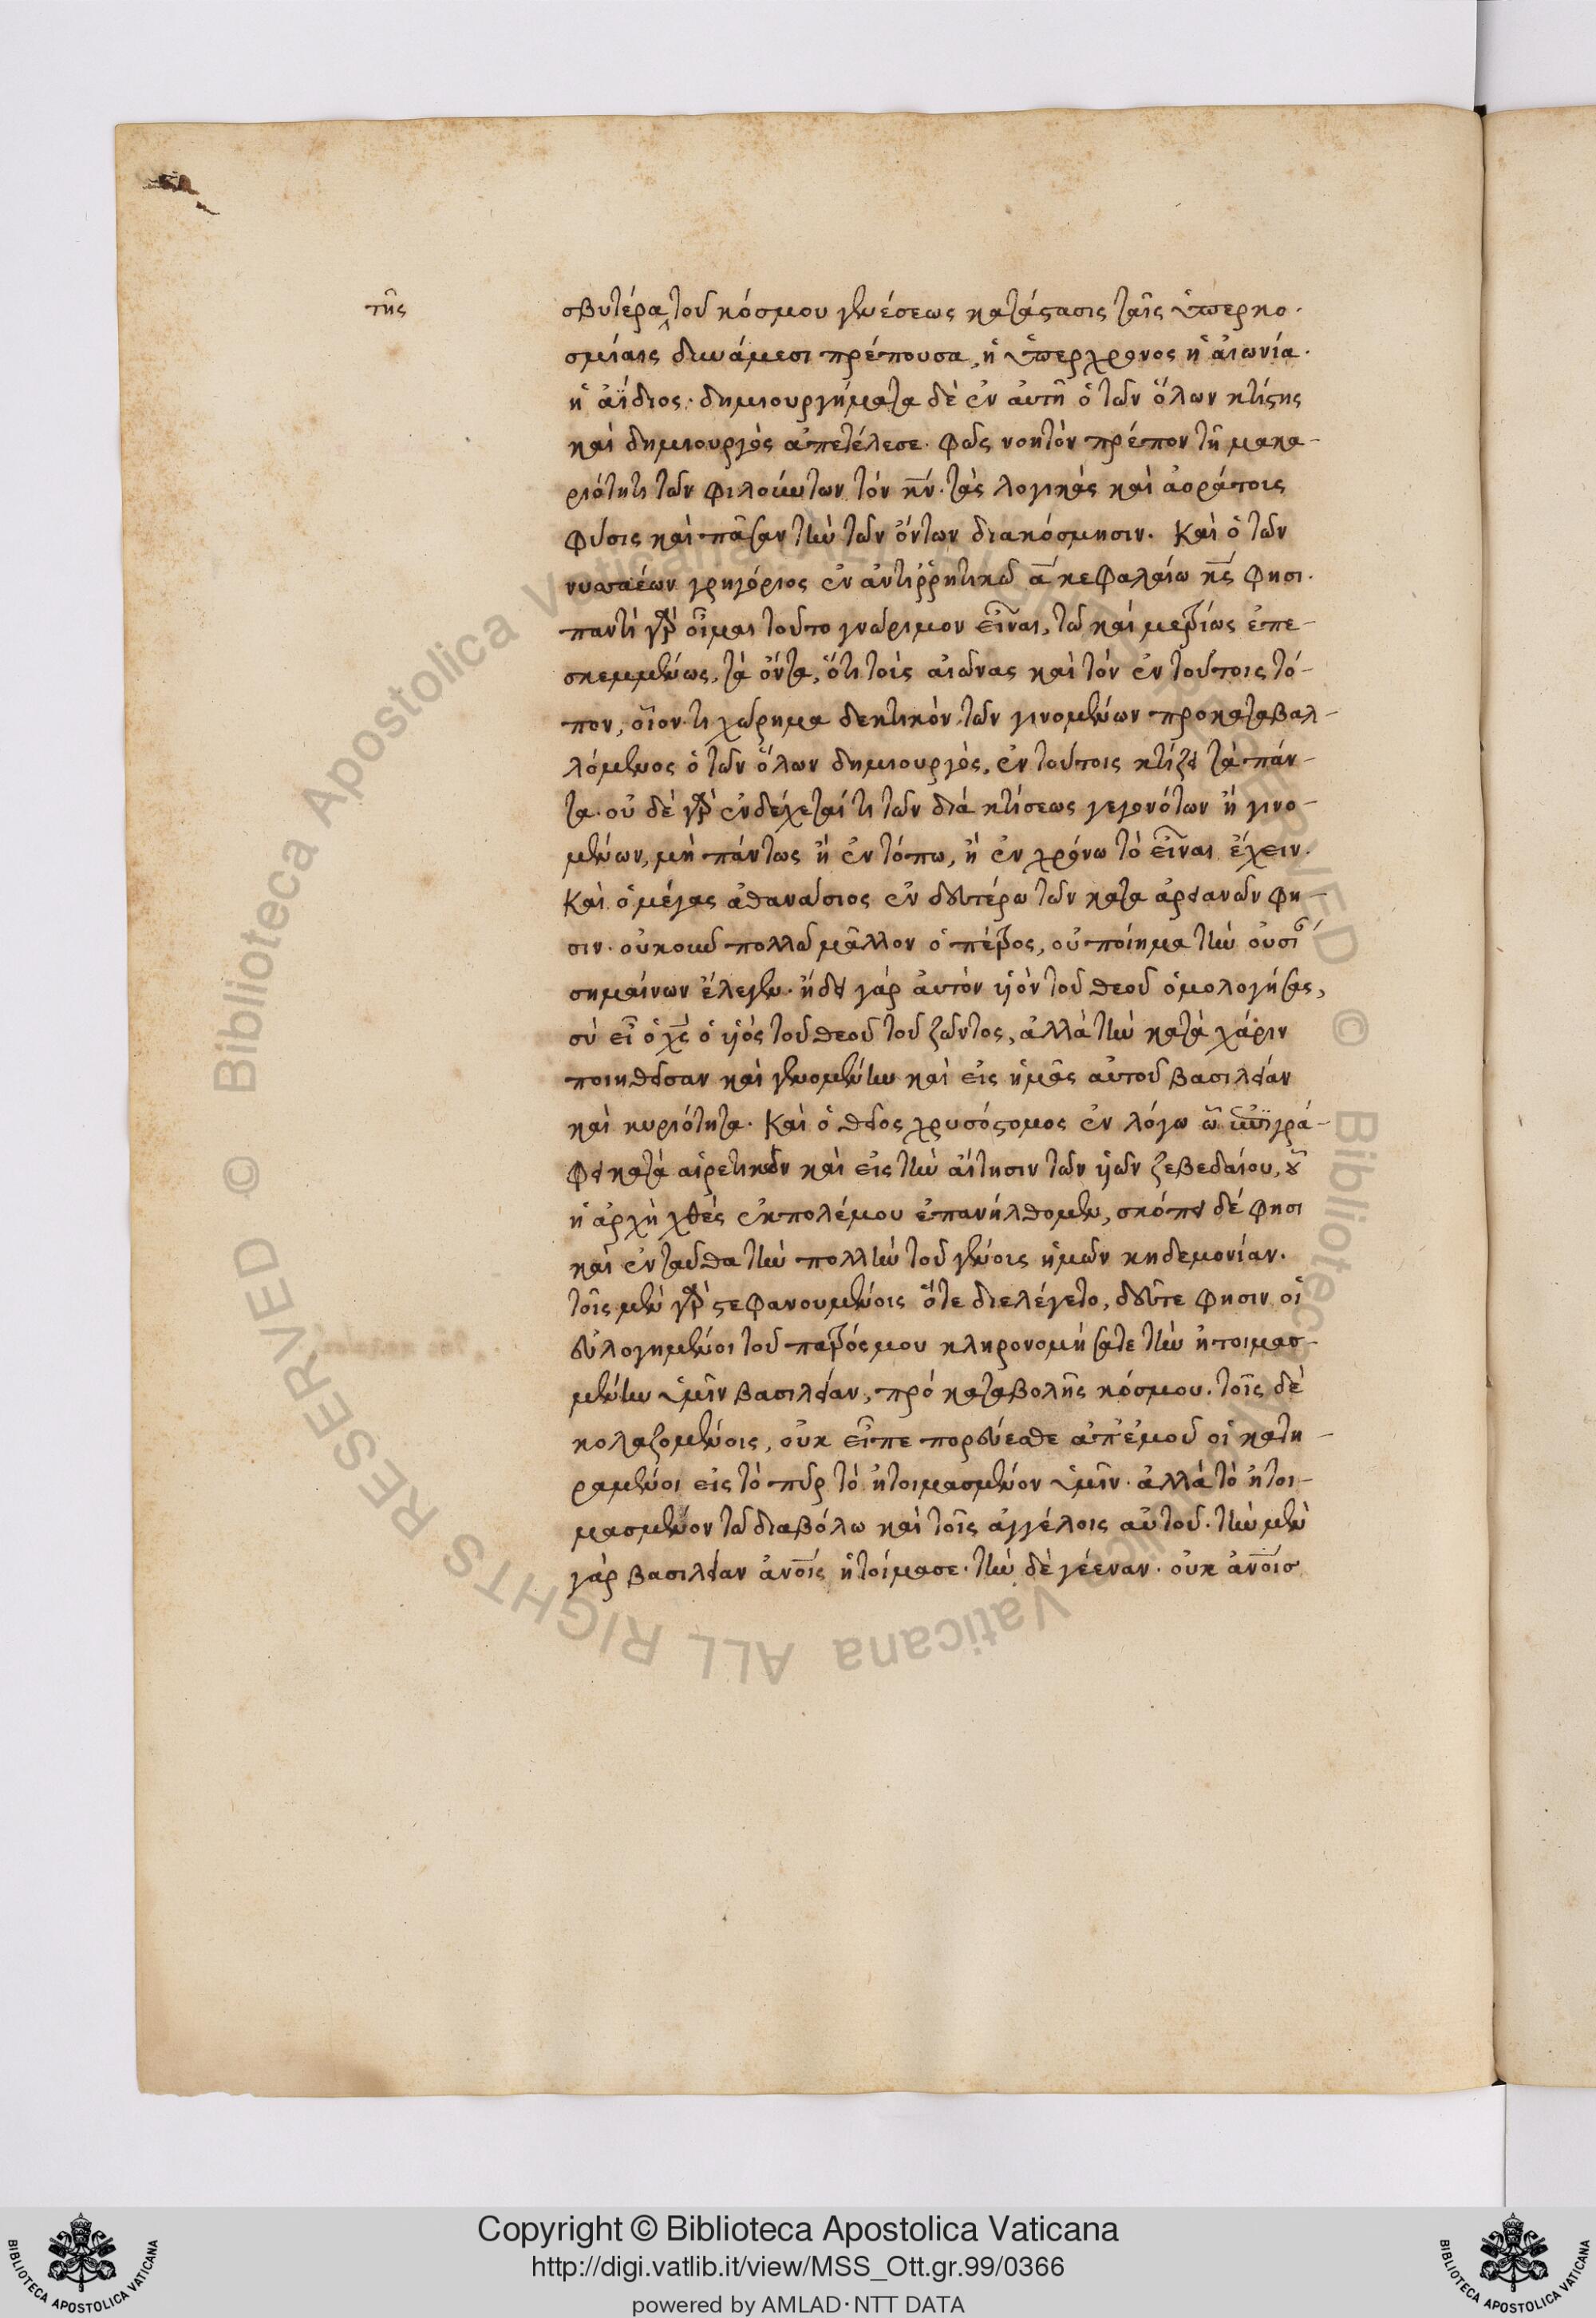 τῆς
σβυτέρα τοῦ κόσμου γενέσεως κατάστασις ταῖς ὑπερκο-
σμίαις δυνάμεσι πρέπουσα, ἡ ὑπέρχρονος ἡ αἰωνία.
ἡ ἀΐδιος. δημιουργήματα δὲ ἐν αὐτῆ ὁ τῶν ὅλων κτίστης
καὶ δημιουργὸς ἀπετέλεσε. φῶς νοητὸν πρέπον τῆ μακα-
ριότητι τῶν φιλούντων τὸν κν. τὰς λογικὰς καὶ ἀοράτοις
φύσις καὶ πᾶσαν τὴν τῶν ὄντων διακόσμησιν. Καὶ ὁ τῶν
νυσσαέων γρηγόριος ἐν ἀντιρρητικῶ α κεφαλαίω κς φησι.
παντὶ γὰρ οἶμαι τοῦτο γνώριμον εἶναι, τῶ καὶ μετρίως ἐπε-
σκεμμένως, τὰ ὄντα, ὅτι τοὺς αἰῶνας καὶ τὸν ἐν τούτοις τό-
πον, οἷόν τι χώρημα δεκτικὸν τῶν γινομένων προκαταβαλ-
λόμενος ὁ τῶν ὅλων δημιουργὸς, ἐν τούτοις κτίζει τὰ πάν-
τα. οὐ δὲ γὰρ ἐνδέχεταί τι τῶν διὰ κτίσεως γεγονότων ἢ γινο-
μένων, μὴ πάντως ἢ ἐν τόπω, ἢ ἐν χρόνω τὸ εἶναι ἔχειν.
Καὶ ὁ μέγας ἀθανάσιος ἐν δευτέρω τῶν κατα ἀρειανῶν φη-
σιν. οὐκοῦν πολλῶ μᾶλλον ὁ πέτρος, οὐ ποίημα τὴν οὐσί
σημαίνων ἔλεγεν. ἤδει γὰρ αὐτὸν υἱὸν τοῦ θεοῦ ὁμολογήσας,
σὺ εἶ ὁ χς ὁ υἱός τοῦ θεοῦ τοῦ ζῶντος, ἀλλὰ τὴν κατὰ χάριν
ποιηθεῖσαν καὶ γενομένην καὶ εἰς ἡμᾶς αὐτοῦ βασιλείαν
καὶ κυριότητα. Καὶ ὁ θεῖος χρυσόστομος ἐν λόγω ὧ ἐπιγρά-
φει κατὰ αἱρετικῶν καὶ εἰς τὴν αἴτησιν τῶν υἱῶν ζεβεδαίου, οὗ
ἡ ἀρχὴ χθὲς ἐκ πολέμου ἐπανήλθομεν, σκόπει δέ φησι
καὶ ἐνταῦθα τὴν πολλὴν τοῦ γένοις ἡμῶν κηδεμονίαν.
τοῖς μὲν γὰρ στεφανουμένοις ὅτε διελέγετο, δεῦτε φησιν οἱ
εὐλογημένοι τοῦ πατρός μου κληρονομήσατε τὴν ἡτοιμασ-
μένην ὑμῖν βασιλείαν, πρὸ καταβολῆς κόσμου. τοῖς δὲ
κολαζομένοις, οὐκ εἶπε πορεύεσθε ἀπ' ἐμοῦ οἱ κατη-
ραμένοι εἰς τὸ πῦρ τὸ ἡτοιμασμένον ὑμῖν. ἀλλὰ τὸ ἡτοι-
μασμένον τῶ διαβόλω καὶ τοῖς ἀγγέλοις αὐτοῦ. τὴν μὲν
γὰρ βασιλείαν ἀνοις ἡτοίμασε. τὴν δὲ γέεναν. οὐκ ἀνοισ
Copyright © Biblioteca Apostolica Vaticana
http://digi.vatlib.it/view/MSS_Ott.gr.99/0366
powered by AMLAD·NTT DATA